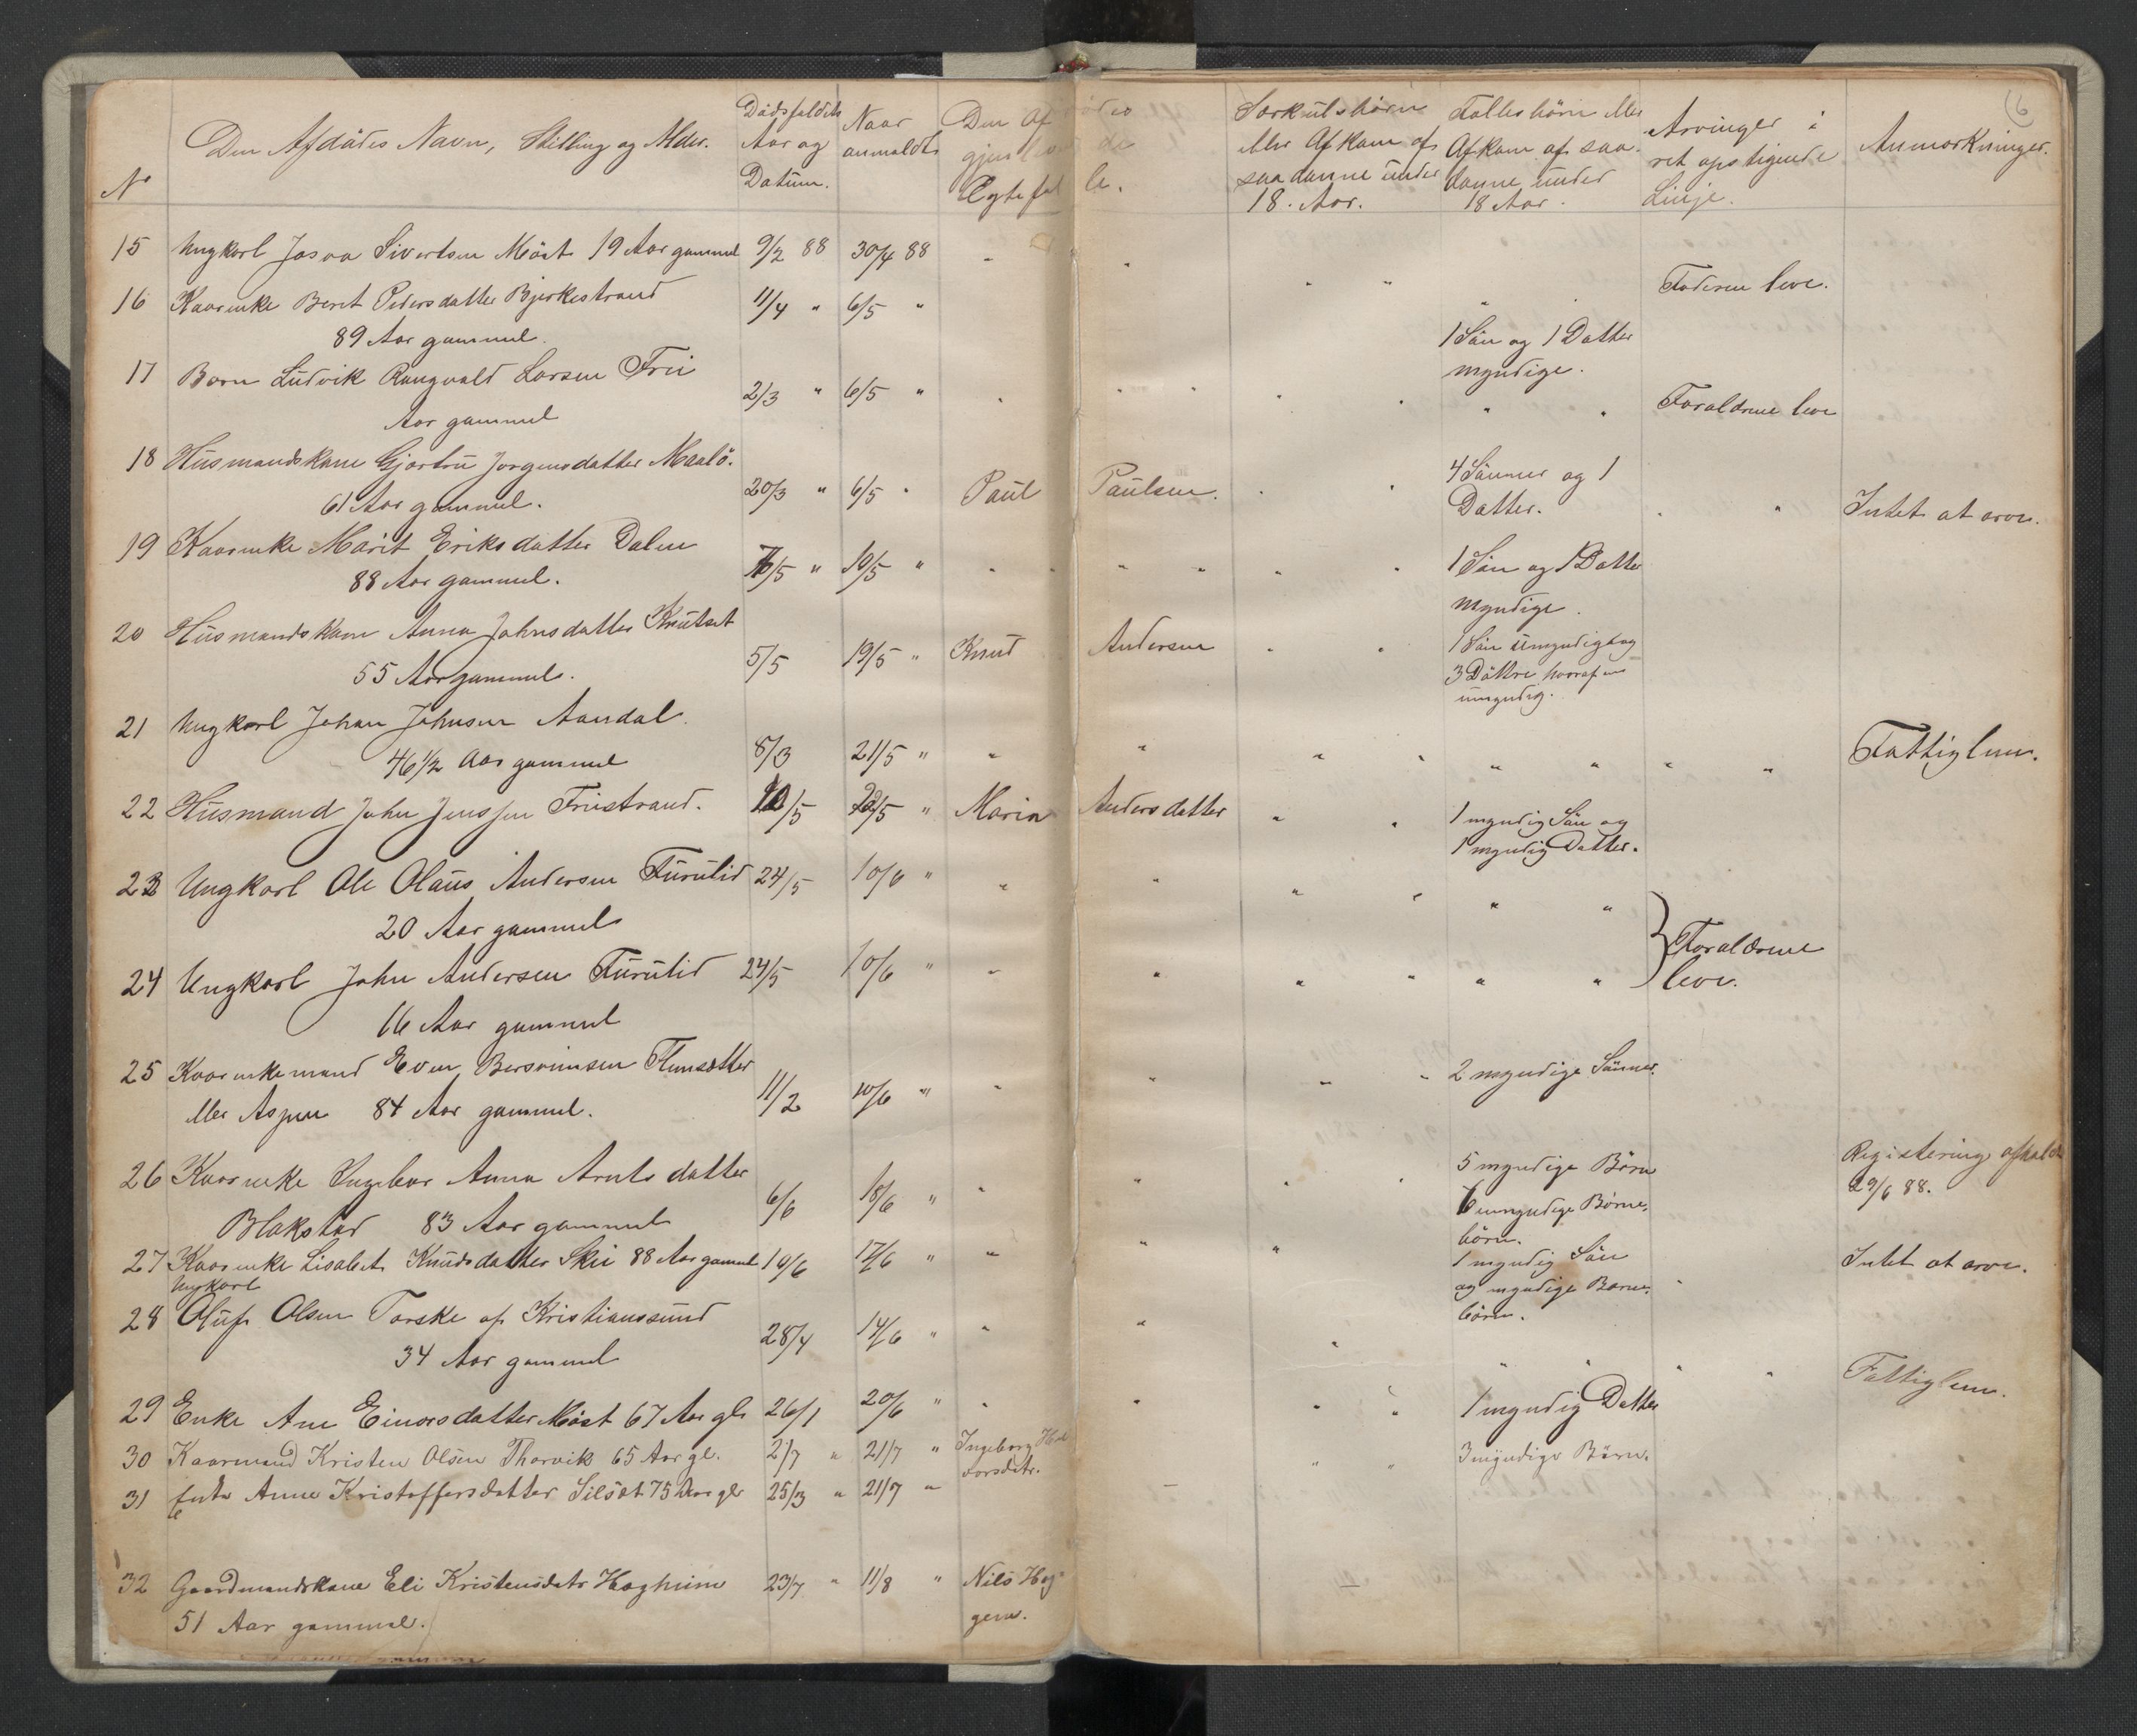 6
No Den Afdødes Navn, Stilling og Alder. Dødsfaldets Aar og Datum. Naar anmeldt Den Afdødes gjenlevende Egtefælle. Særkulsbørn eller Afkom af saadanne under 18. Aar. Fællesbørn eller Afkom af saadanne under 18 Aar. Arvinger i ret opstigende Linje. Anmærkninger.
15 Ungkarl Sivertsen Möst 19 Aar gammel 9/2 88 30/4 88 " " " " " Faderen lever.
16 Kaarenke Beret Pedersdatter Bjerkestrand 11/4 " 6/5 "
89 Aar gammel. 1 Sön og 1 Datter
myndige.
17 Barn Ludvik Rangvald Larsen Frei 2/3 " 6/5 " " " " " " " " Forældrene leve
Aar gammel
18 Husmandskone Gjertru Jørgensdatter Maalö. 20/3 " 6/5 " Paul Paulsen. " " 4 Sönner og 1 " " Intet at arve.
61 Aar gammel. Datter.
19 Kaarenke Marit Eriksdatter Dalen /5 " 10/5 " " " " " " " 1 Sön og 1 Datter
88 Aar gammel. myndige.
20 Husmandskone Anna Johnsdatter Knutset 5/5 19/5 " Knud Andersen " " 1 Sön umyndig og
55 Aar gammel. 3 Döttre hvoraf en
umyndig.
21 Ungkarl Johan Johnsen Aandal. 8/3 21/5 " " " " " " " " " Fattiglem.
46 1/2 Aar gammel
22 Husmand John Jenssen Freistrand. /5 22/5 " Marin Andersdatter " " 1 myndig Sön og
1 myndig Datter.
23 Ungkarl Ole Olaus Andersen Furulid 24/5 10/6 " " " " " " " } Forældrene
20 Aar gammel
24 Ungkarl John Andersen Furulid 24/5 10/6 " " " " " " " leve.
16 Aar gammel
25 Kaarenkemand Even Flemsætter 11/2 10/6 " " " " " 2 myndige Sönner.
eller Aspen 84 Aar gammel.
26 Kaarenke Ingebor Anna Arntsdatter 6/6 18/6 " " " " " 5 myndige Börn Registering afholdt
Blakstad 83 Aar gammel 6 umyndige Börne- 29/6 88.
börn.
27 Kaarenke Lisabet Knudsdatter Skei 88 Aar gammel 10/6 17/6 " " " " 1 myndig Sön " Intet at arve.
og myndige Barne-
börn.
Ungkarl
28 Oluf Olsen Torske af Kristianssund 28/4 14/6 " " " " " " " " Fattiglem.
34 Aar gammel
29 Enke Ane Einarsdatter Möst 67 Aar gl. 26/1 20/6 " " " " " 1 myndig Datter
30 Kaarmand Kristen Olsen Thorvik 65 Aar gl. 2/7 " 21/7 " Ingeborg Hal- " " 3 myndige Börn.
vorsdatr.
31 Enke Anne Kristoffersdatter Silsæt 75 Aar gl. 25/3 " 21/7 " —
32 Gaardmandskone Eli Kristensdatr Hagheim 23/7 " 11/8 " Nils —
51 Aar gammel.